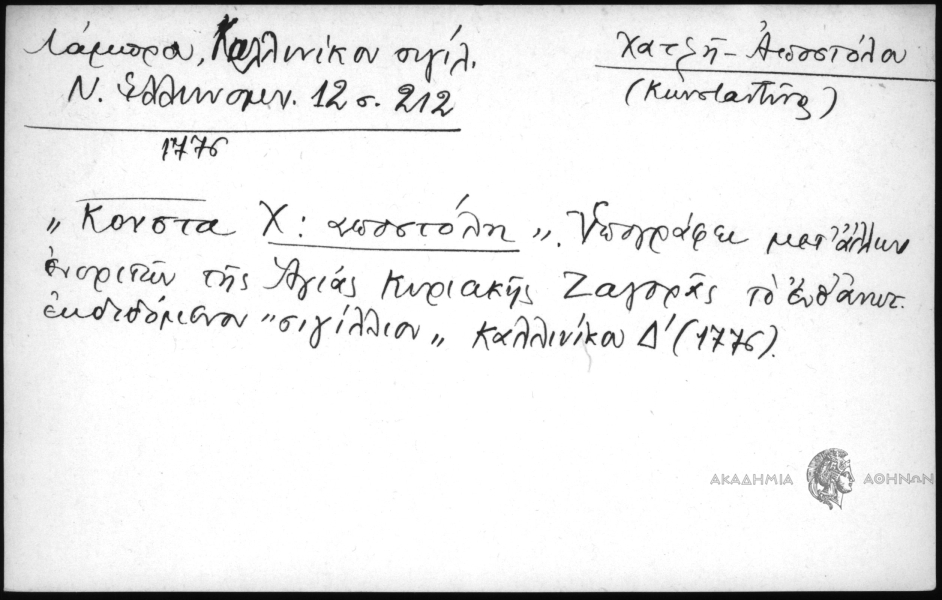 Λάμπρου, Καλλινίκου σιγίλ.
Ν. Ελληνομν. 12 σ. 212
1776
Χατζῆ-Ἀποστόλου
(Κωνσταντῖνος)
„ Κονστα Χ: αποστόλη „. Ὑπογράφει μετ' ἄλλων
ἐνοριτῶν τῆς Ἁγιάς Κυριακῆς Ζαγορᾶς τὸ
ἐκδιδόμενον "σιγίλλιον„ Καλλινίκου Δ' (1776).
ΑΚΑΔΗΜΙΑ ΑΘΗΝΩΝ